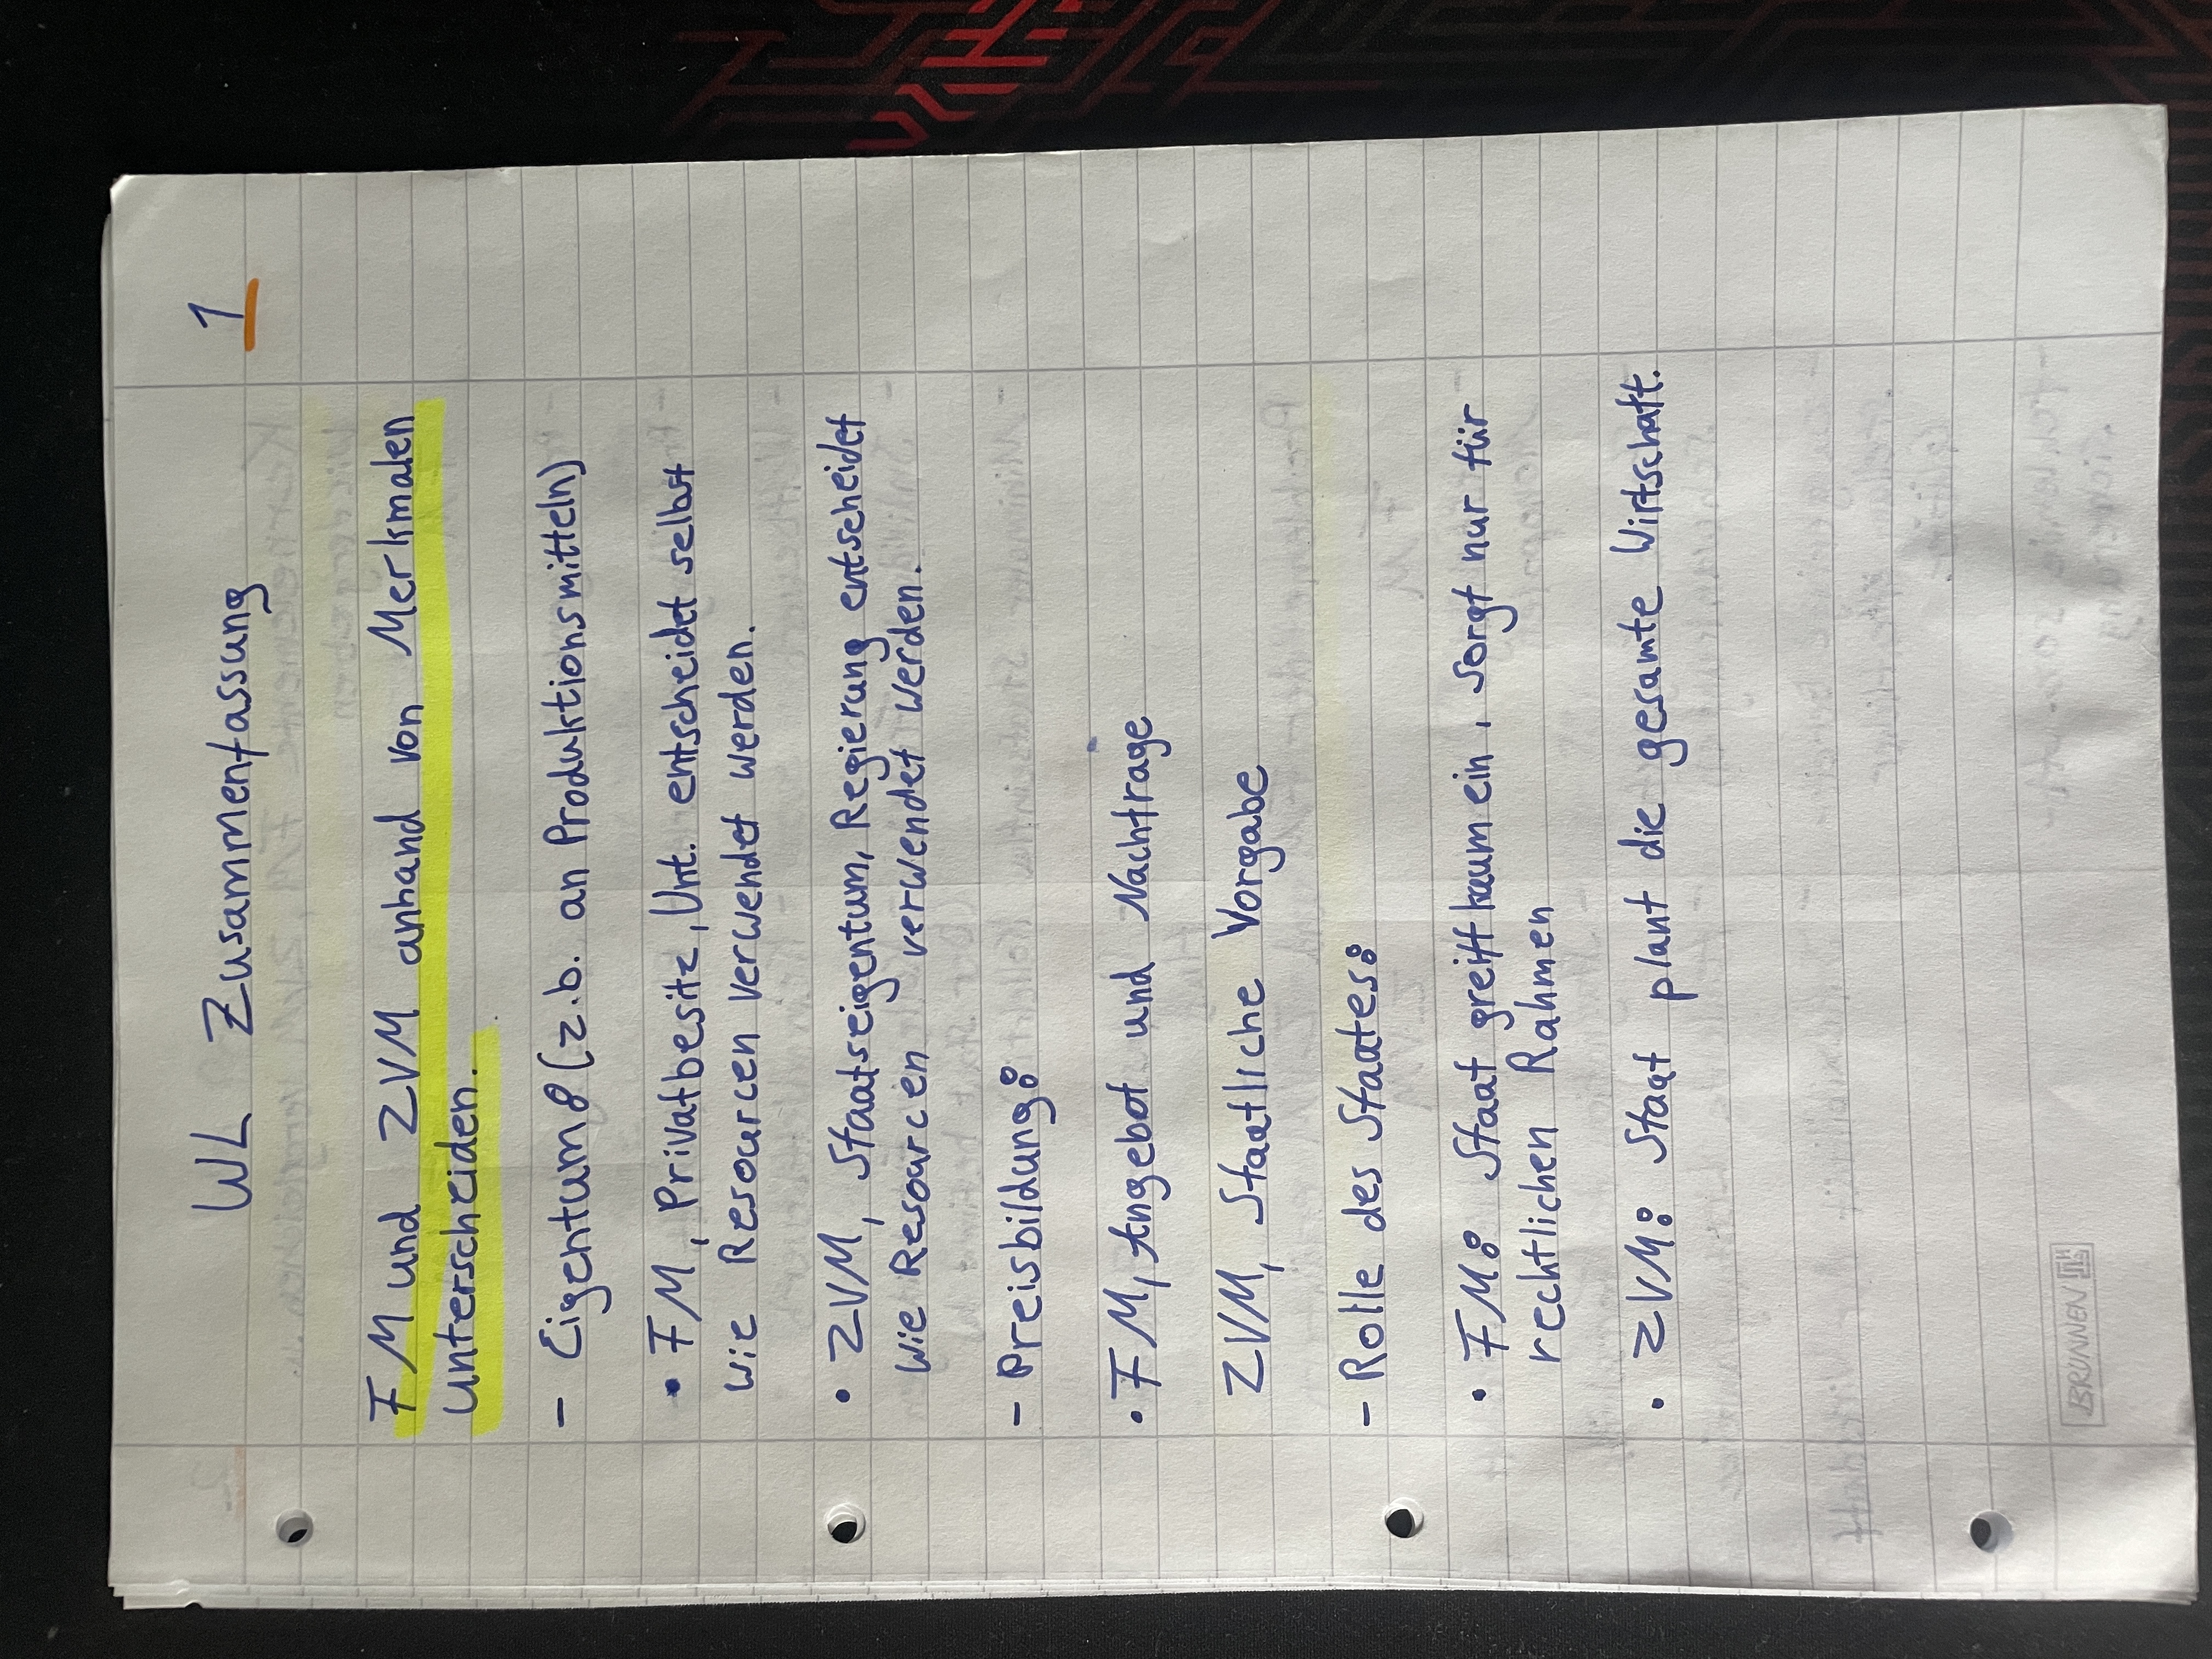 WL Zusammenfassung 1
FM und ZVM anhand von Merkmalen
unterscheiden.
- Eigentum: (z.b. an Produktionsmitteln)
• FM, Privatbesitz, Unt. entscheidet selbst
wie Resourcen verwendet werden.
• ZVM, Staatseigentum, Regierung entscheidet
wie Resourcen verwendet werden.
- Preisbildung:
• FM, Angebot und Nachfrage
ZVM, Staatliche Vorgabe
- Rolle des Staates:
• FM: Staat greift kaum ein, sorgt nur für
rechtlichen Rahmen
• ZVM: Staat plant die gesamte Wirtschaft.
BRUNNEN